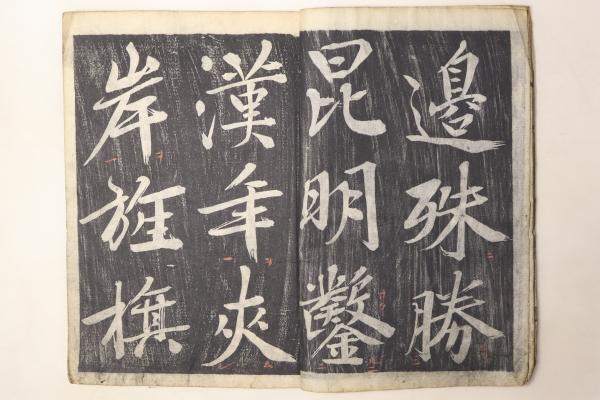 邊殊勝
昆明鑿
漢年夾
岸旌旗